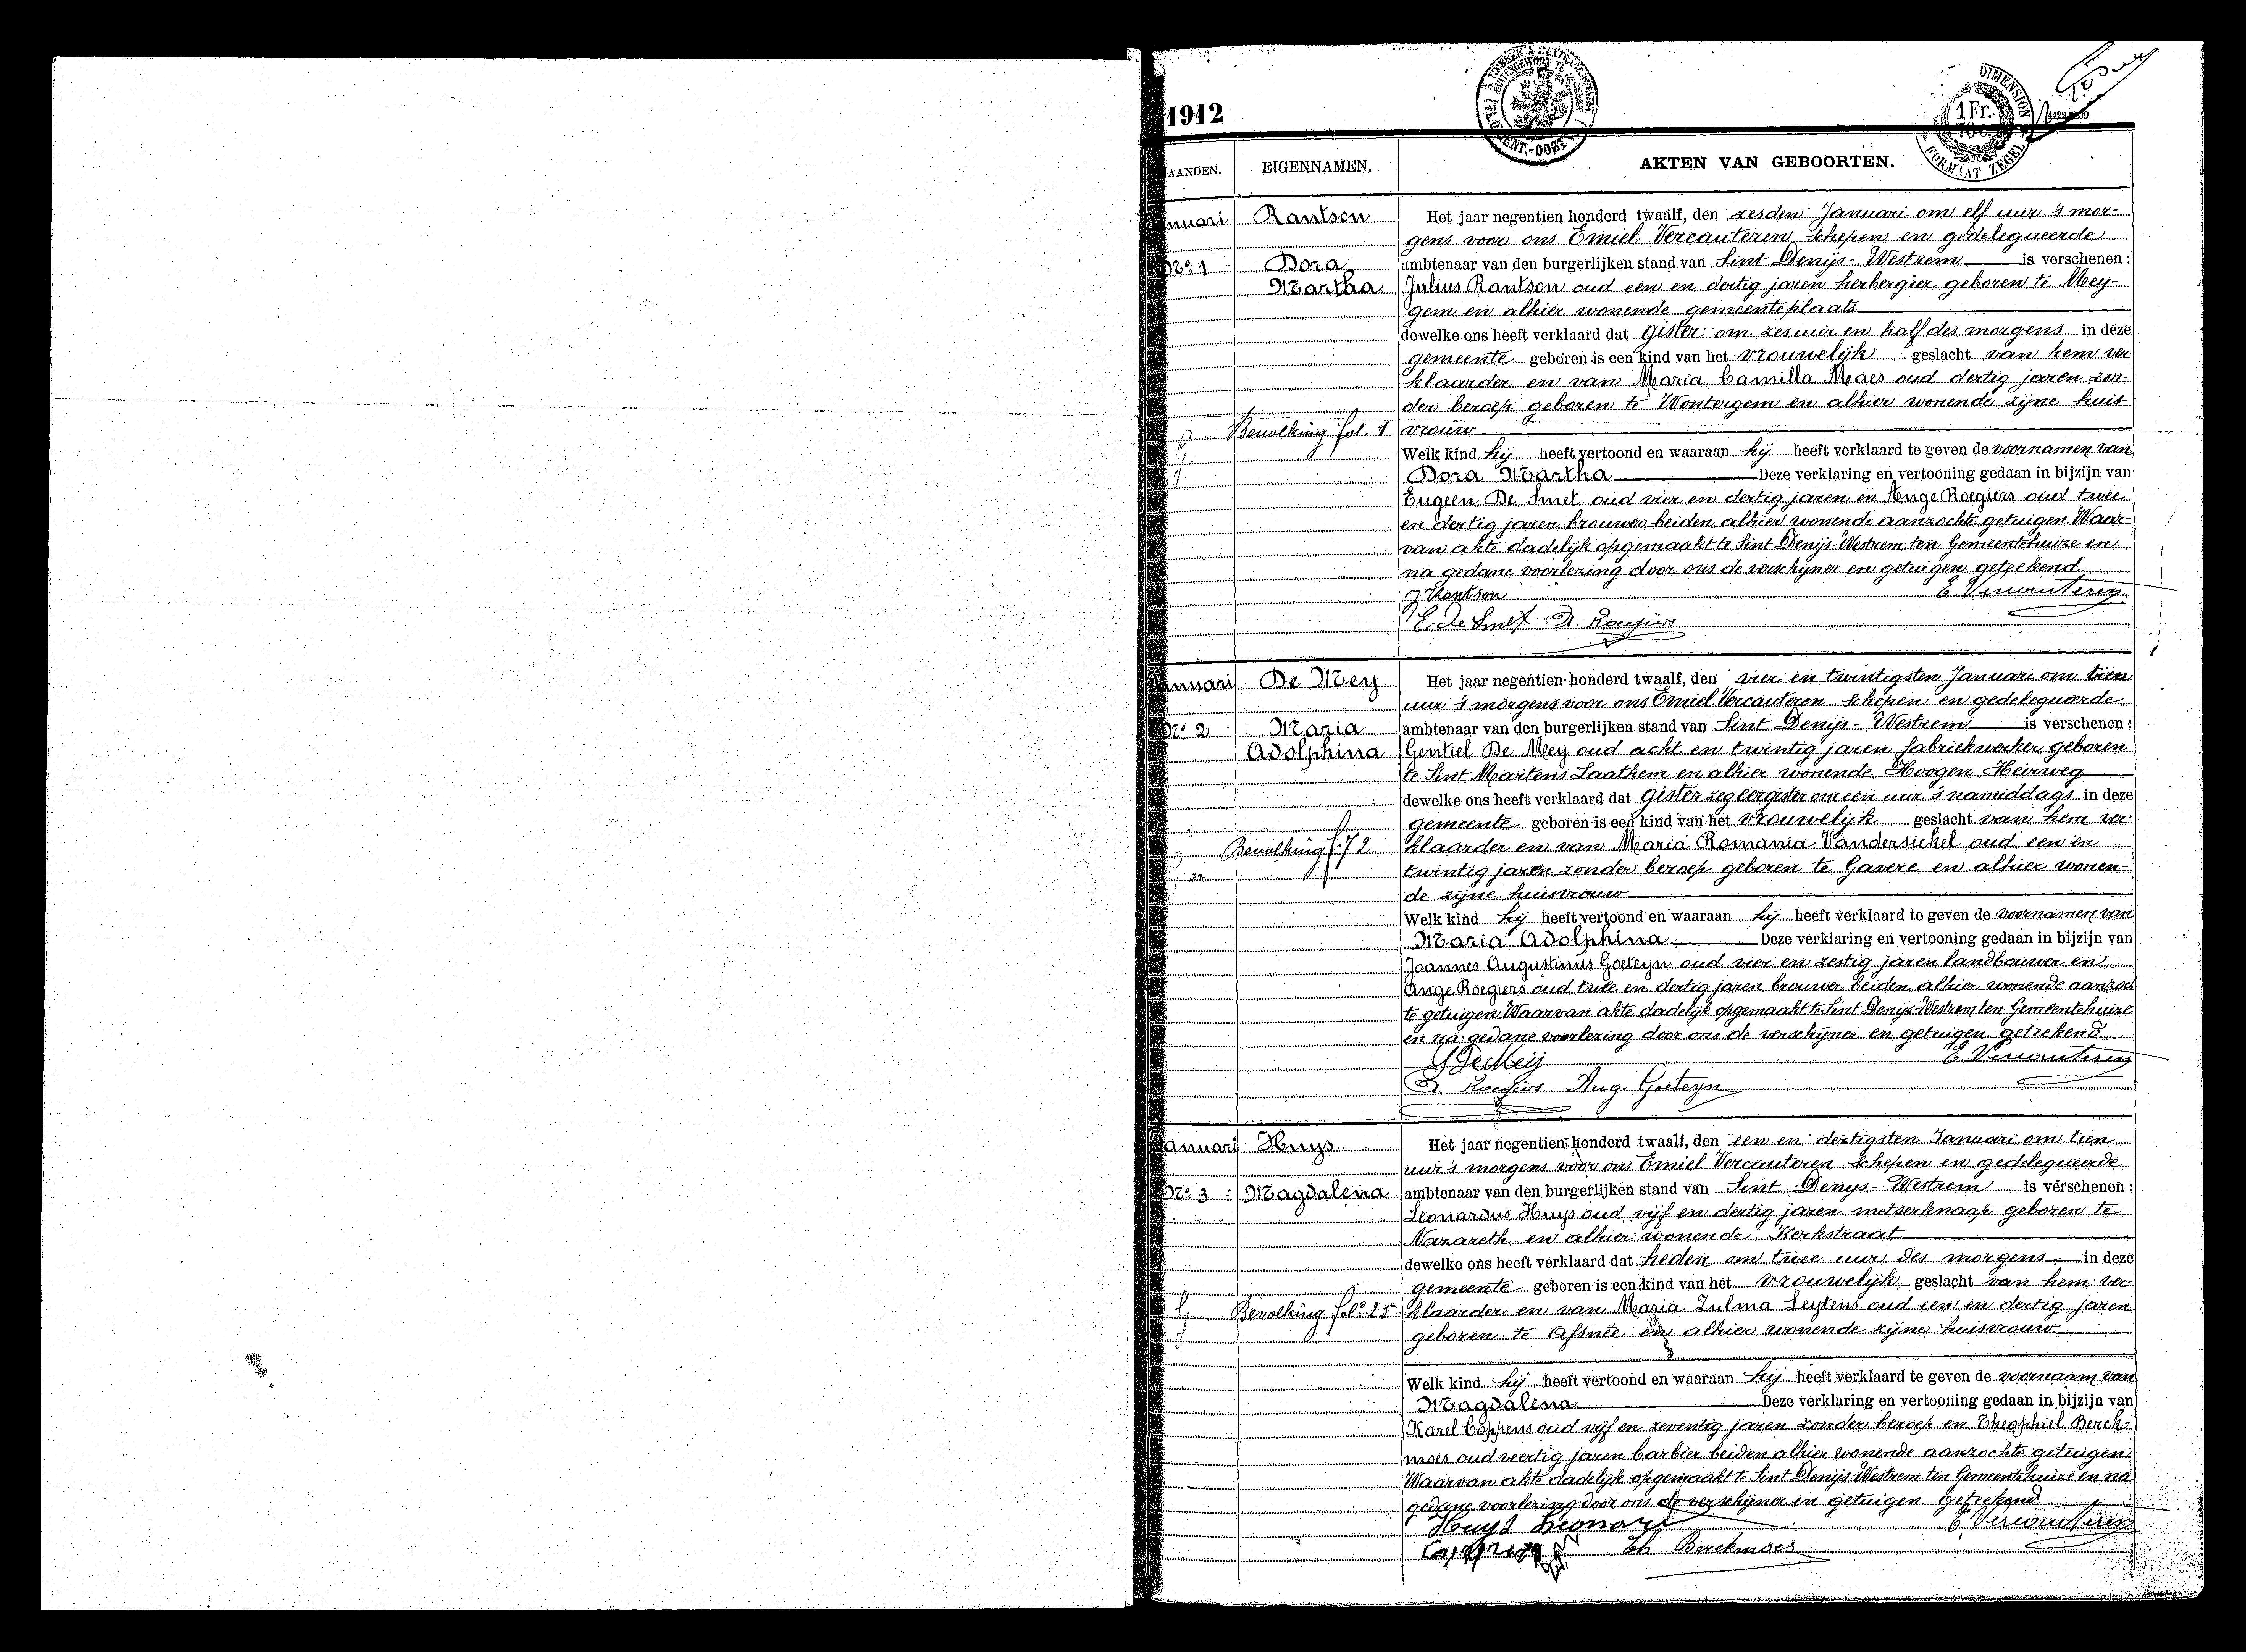 1912
DIMENSION
1 Fr.
FORMAAT ZEGEL
MAANDEN. EIGENNAMEN. AKTEN VAN GEBOORTEN.
Januari Rantson Het jaar negentien honderd twaalf, den zesden Januari om elf uur 's mor-
gens voor ons Emiel Vercauteren schepen en gedelegueerde
No 1 Dora ambtenaar van den burgerlijken stand van Sint Denijs-Westrem is verschenen:
Martha Julius Rantson oud een en dertig jaren herbergier geboren te Mey-
gem en alhier wonende gemeenteplaats
dewelke ons heeft verklaard dat gister om zes uur en half des morgens in deze
gemeente geboren is een kind van het vrouwelijk geslacht van hem ver-
klaarder en van Maria Camilla Maes oud dertig jaren zon-
der beroep geboren te Wontergem en alhier wonende zijne huis-
Bevolking fol. 1 vrouw
Welk kind hij heeft vertoond en waaraan hij heeft verklaard te geven de voornamen van
Dora Martha Deze verklaring en vertooning gedaan in bijzijn van
Eugeen De Smet oud vier en dertig jaren en Ange Roegiers oud twee
en dertig jaren brouwer beiden alhier wonende aanzochte getuigen Waar-
van akte dadelijk opgemaakt te Sint Denijs-Westrem ten Gemeentehuize en
na gedane voorlezing door ons de verschijner en getuigen geteekend
J Rantson E Vercauteren
E. De Smet A. Roegiers
Januari De Mey Het jaar negentien honderd twaalf, den vier en twintigsten Januari om tien
uur 's morgens voor ons Emiel Vercauteren schepen en gedelegueerde
No 2 Maria ambtenaar van den burgerlijken stand van Sint Denijs-Westrem is verschenen:
Adolphina Gentiel De Mey oud acht en twintig jaren fabriekwerker geboren
te Sint Martens Laathem en alhier wonende Hoogen Heirweg
dewelke ons heeft verklaard dat gister zeg eergister om een uur 's namiddags in deze
gemeente geboren is een kind van het vrouwelijk geslacht van hem ver-
Bevolking f. 72 klaarder en van Maria Romania Vandersickel oud een en
twintig jaren zonder beroep geboren te Gavere en alhier wonen-
de zijne huisvrouw
Welk kind hij heeft vertoond en waaraan hij heeft verklaard te geven de voornamen van
Maria Adolphina Deze verklaring en vertooning gedaan in bijzijn van
Joannes Augustinus Goeteyn oud vier en zestig jaren landbouwer en
Ange Roegiers oud twee en dertig jaren brouwer beiden alhier wonende aanzoch
te getuigen Waarvan akte dadelijk opgemaakt te Sint Denijs-Westrem ten Gemeentehuize
en na gedane voorlezing door ons de verschijner en getuigen geteekend
G De Meij E Vercauteren
A. Roegiers Aug. Goeteyn
Januari Huys Het jaar negentien honderd twaalf, den een en dertigsten Januari om tien
uur 's morgens voor ons Emiel Vercauteren schepen en gedelegueerde
No 3 Magdalena ambtenaar van den burgerlijken stand van Sint Denys-Westrem is verschenen:
Leonardus Huys oud vijf en dertig jaren metserknaap geboren te
Nazareth en alhier wonende Kerkstraat
dewelke ons heeft verklaard dat heden om twee uur des morgens in deze
gemeente geboren is een kind van het vrouwelijk geslacht van hem ver-
Bevolking folo 25 klaarder en van Maria Zulma Leytens oud een en dertig jaren
geboren te Afsnee en alhier wonende zijne huisvrouw
Welk kind hij heeft vertoond en waaraan hij heeft verklaard te geven de voornaam van
Magdalena Deze verklaring en vertooning gedaan in bijzijn van
Karel Coppens oud vijf en zeventig jaren zonder beroep en Theophiel Berck-
moes oud veertig jaren barbier beiden alhier wonende aanzochte getuigen
Waarvan akte dadelijk opgemaakt te Sint Denijs-Westrem ten Gemeentehuize en na
gedane voorlezing door ons de verschijner en getuigen geteekend
Huys Leonard E Vercauteren
Coppens Th Berckmoes